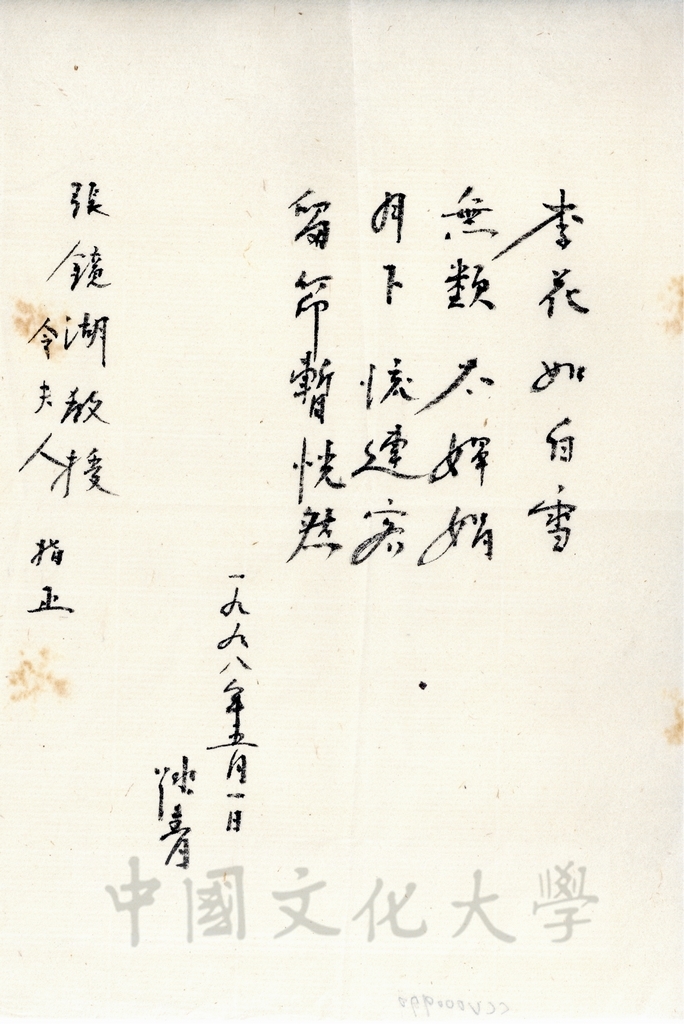 李花如白雪
無類不嬋娟
月下懷遠客
留命暫恍然
一九九八年五月一日
青
張鏡湖教授
令夫人
指正
中國文化大學